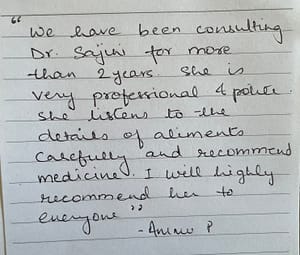 "We have been consulting
Dr. Sajini for more
than 2 years. She is
very professional & polite.
She listens to the
details of aliments
carefully and recommend
medicine. I will highly
recommend her to
everyone"
- P